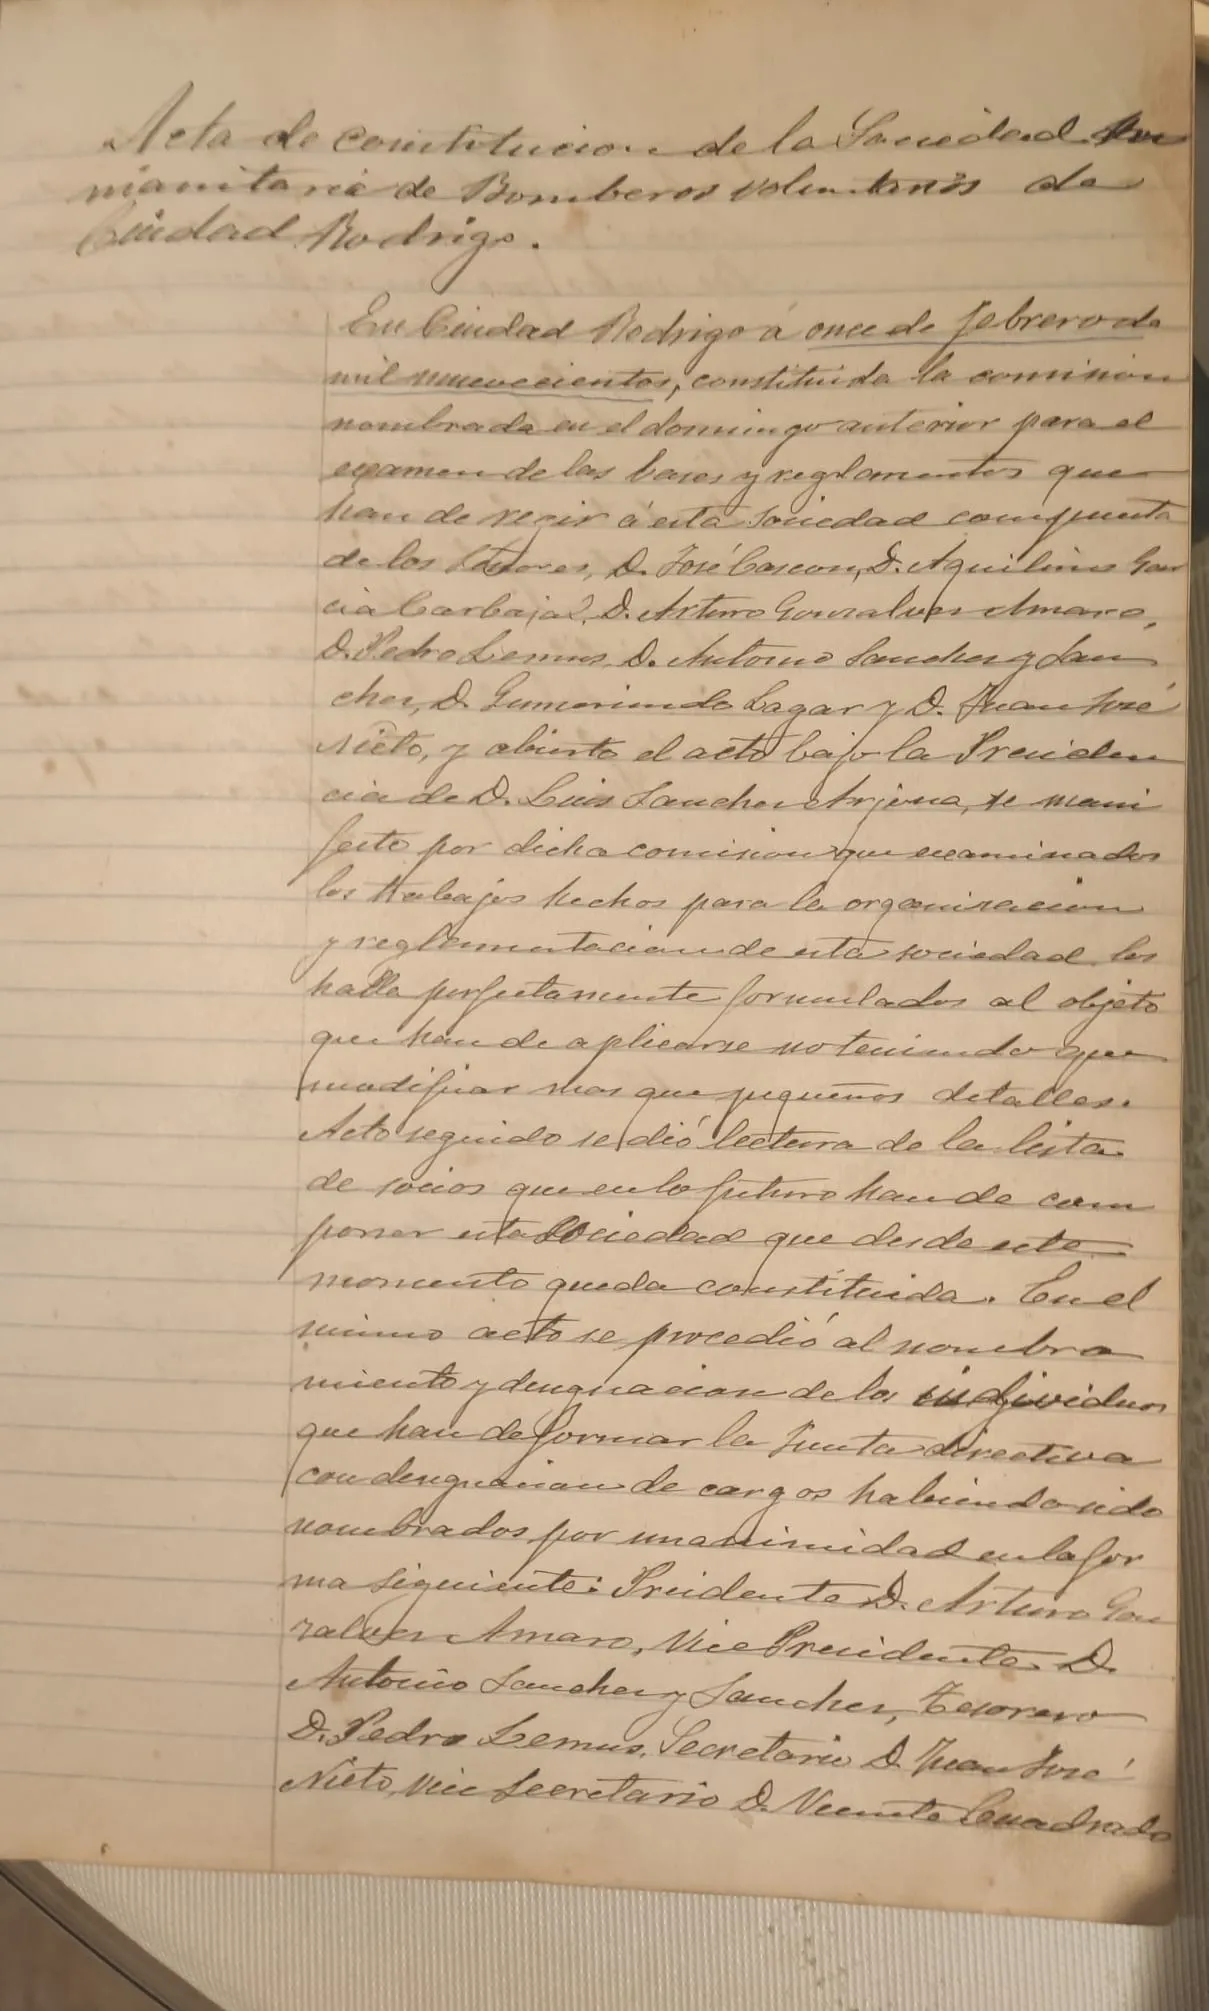 Acta de constitucion de la Sociedad Hu
manitaria de Bomberos voluntarios de
Ciudad Rodrigo.
En Ciudad Rodrigo á once de febrero de
mil nuevecientos, constituida la comision
nombrada en el domingo anterior para el
examen de las bases y reglamentos que
han de regir á esta sociedad compuesta
de los Señores, D. José Cascon, D. Aquilino Gar
cia Carbajal, D. Arturo Gonzalvez Amaro,
D. Pedro Lemus, D. Antonio Sanchez y San
chez, D. Gumersindo Lagar y D. Juan José
Nieto, y abierto el acto bajo la Presiden
cia de D. Luis Sanchez Arjona, se mani
festo por dicha comision que examinados
los trabajos hechos para la organizacion
y reglamentacion de esta sociedad los
halla perfectamente formulados al objeto
que han de aplicarse no teniendo que
modificar mas que pequeños detalles.
Acto seguido se dió lectura de la lista
de socios que en lo futuro han de com
poner esta Sociedad que desde este
momento queda constituida. En el
mismo acto se procedió al nombra
miento y designacion de los individuos
que han de formar la Junta directiva
con designacion de cargos habiendo sido
nombrados por unanimidad en la for
ma siguiente: Presidente D. Arturo Gon
zalvez Amaro, Vice Presidente D.
Antonio Sanchez y Sanchez, Tesorero
D. Pedro Lemus, Secretario D. Juan José
Nieto, Vice Secretario D. Vicente Cuadrado